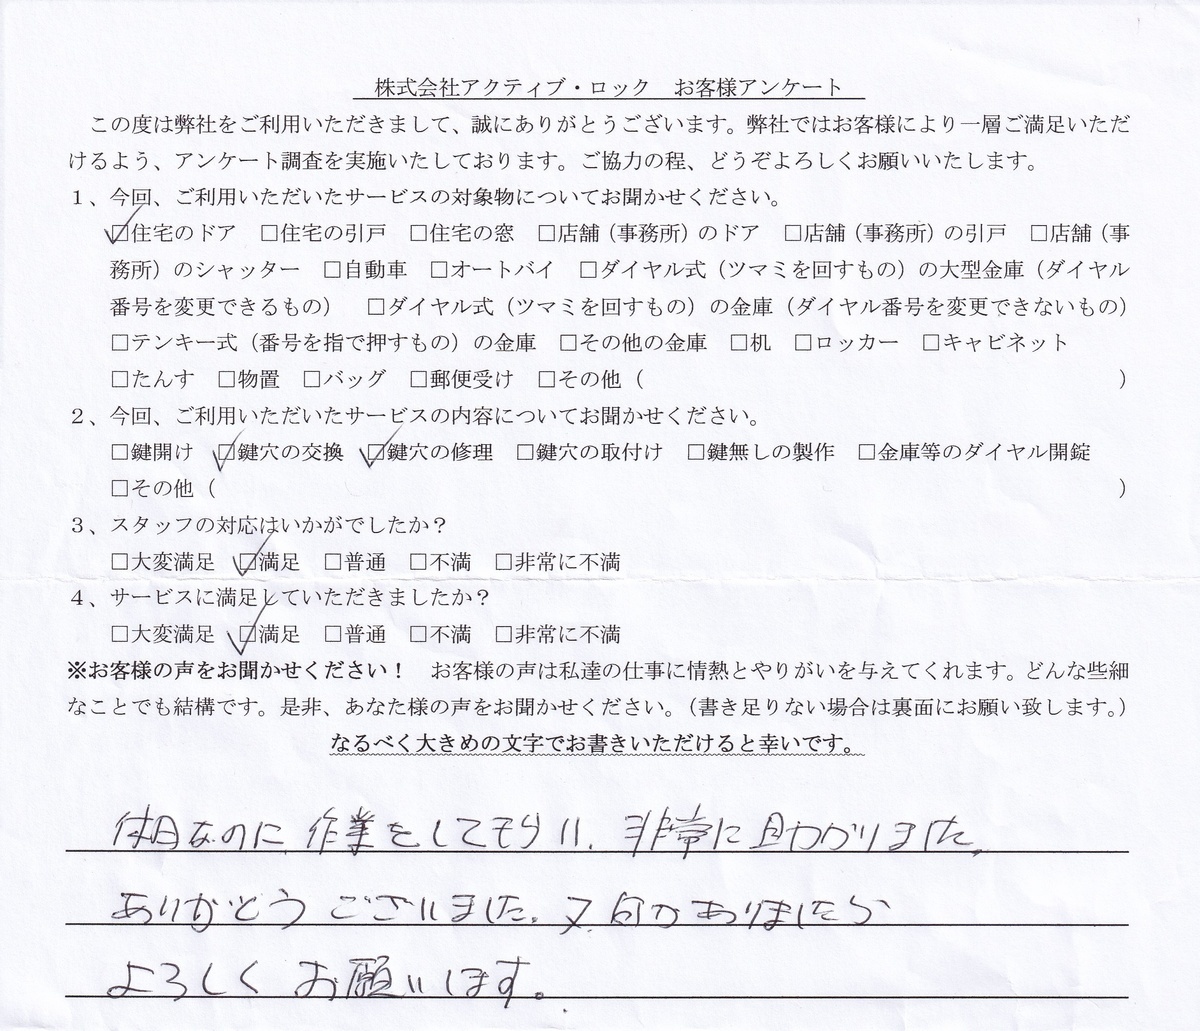 株式会社アクティブ・ロック　お客様アンケート
この度は弊社をご利用いただきまして、誠にありがとうございます。弊社ではお客様により一層ご満足いただ
けるよう、アンケート調査を実施いたしております。ご協力の程、どうぞよろしくお願いいたします。
１、今回、ご利用いただいたサービスの対象物についてお聞かせください。
☑住宅のドア　□住宅の引戸　□住宅の窓　□店舗（事務所）のドア　□店舗（事務所）の引戸　□店舗（事
務所）のシャッター　□自動車　□オートバイ　□ダイヤル式（ツマミを回すもの）の大型金庫（ダイヤル
番号を変更できるもの）　□ダイヤル式（ツマミを回すもの）の金庫（ダイヤル番号を変更できないもの）
□テンキー式（番号を指で押すもの）の金庫　□その他の金庫　□机　□ロッカー　□キャビネット
□たんす　□物置　□バッグ　□郵便受け　□その他（　　　）
２、今回、ご利用いただいたサービスの内容についてお聞かせください。
□鍵開け　☑鍵穴の交換　☑鍵穴の修理　□鍵穴の取付け　□鍵無しの製作　□金庫等のダイヤル開錠
□その他（　　　）
３、スタッフの対応はいかがでしたか？
□大変満足　☑満足　□普通　□不満　□非常に不満
４、サービスに満足していただきましたか？
□大変満足　☑満足　□普通　□不満　□非常に不満
※お客様の声をお聞かせください！　お客様の声は私達の仕事に情熱とやりがいを与えてくれます。どんな些細
なことでも結構です。是非、あなた様の声をお聞かせください。（書き足りない場合は裏面にお願い致します。）
なるべく大きめの文字でお書きいただけると幸いです。
休日なのに 作業をしてもらい、非常に助かりました。
ありがとう ございました。又、何かありましたら
よろしく お願いします。